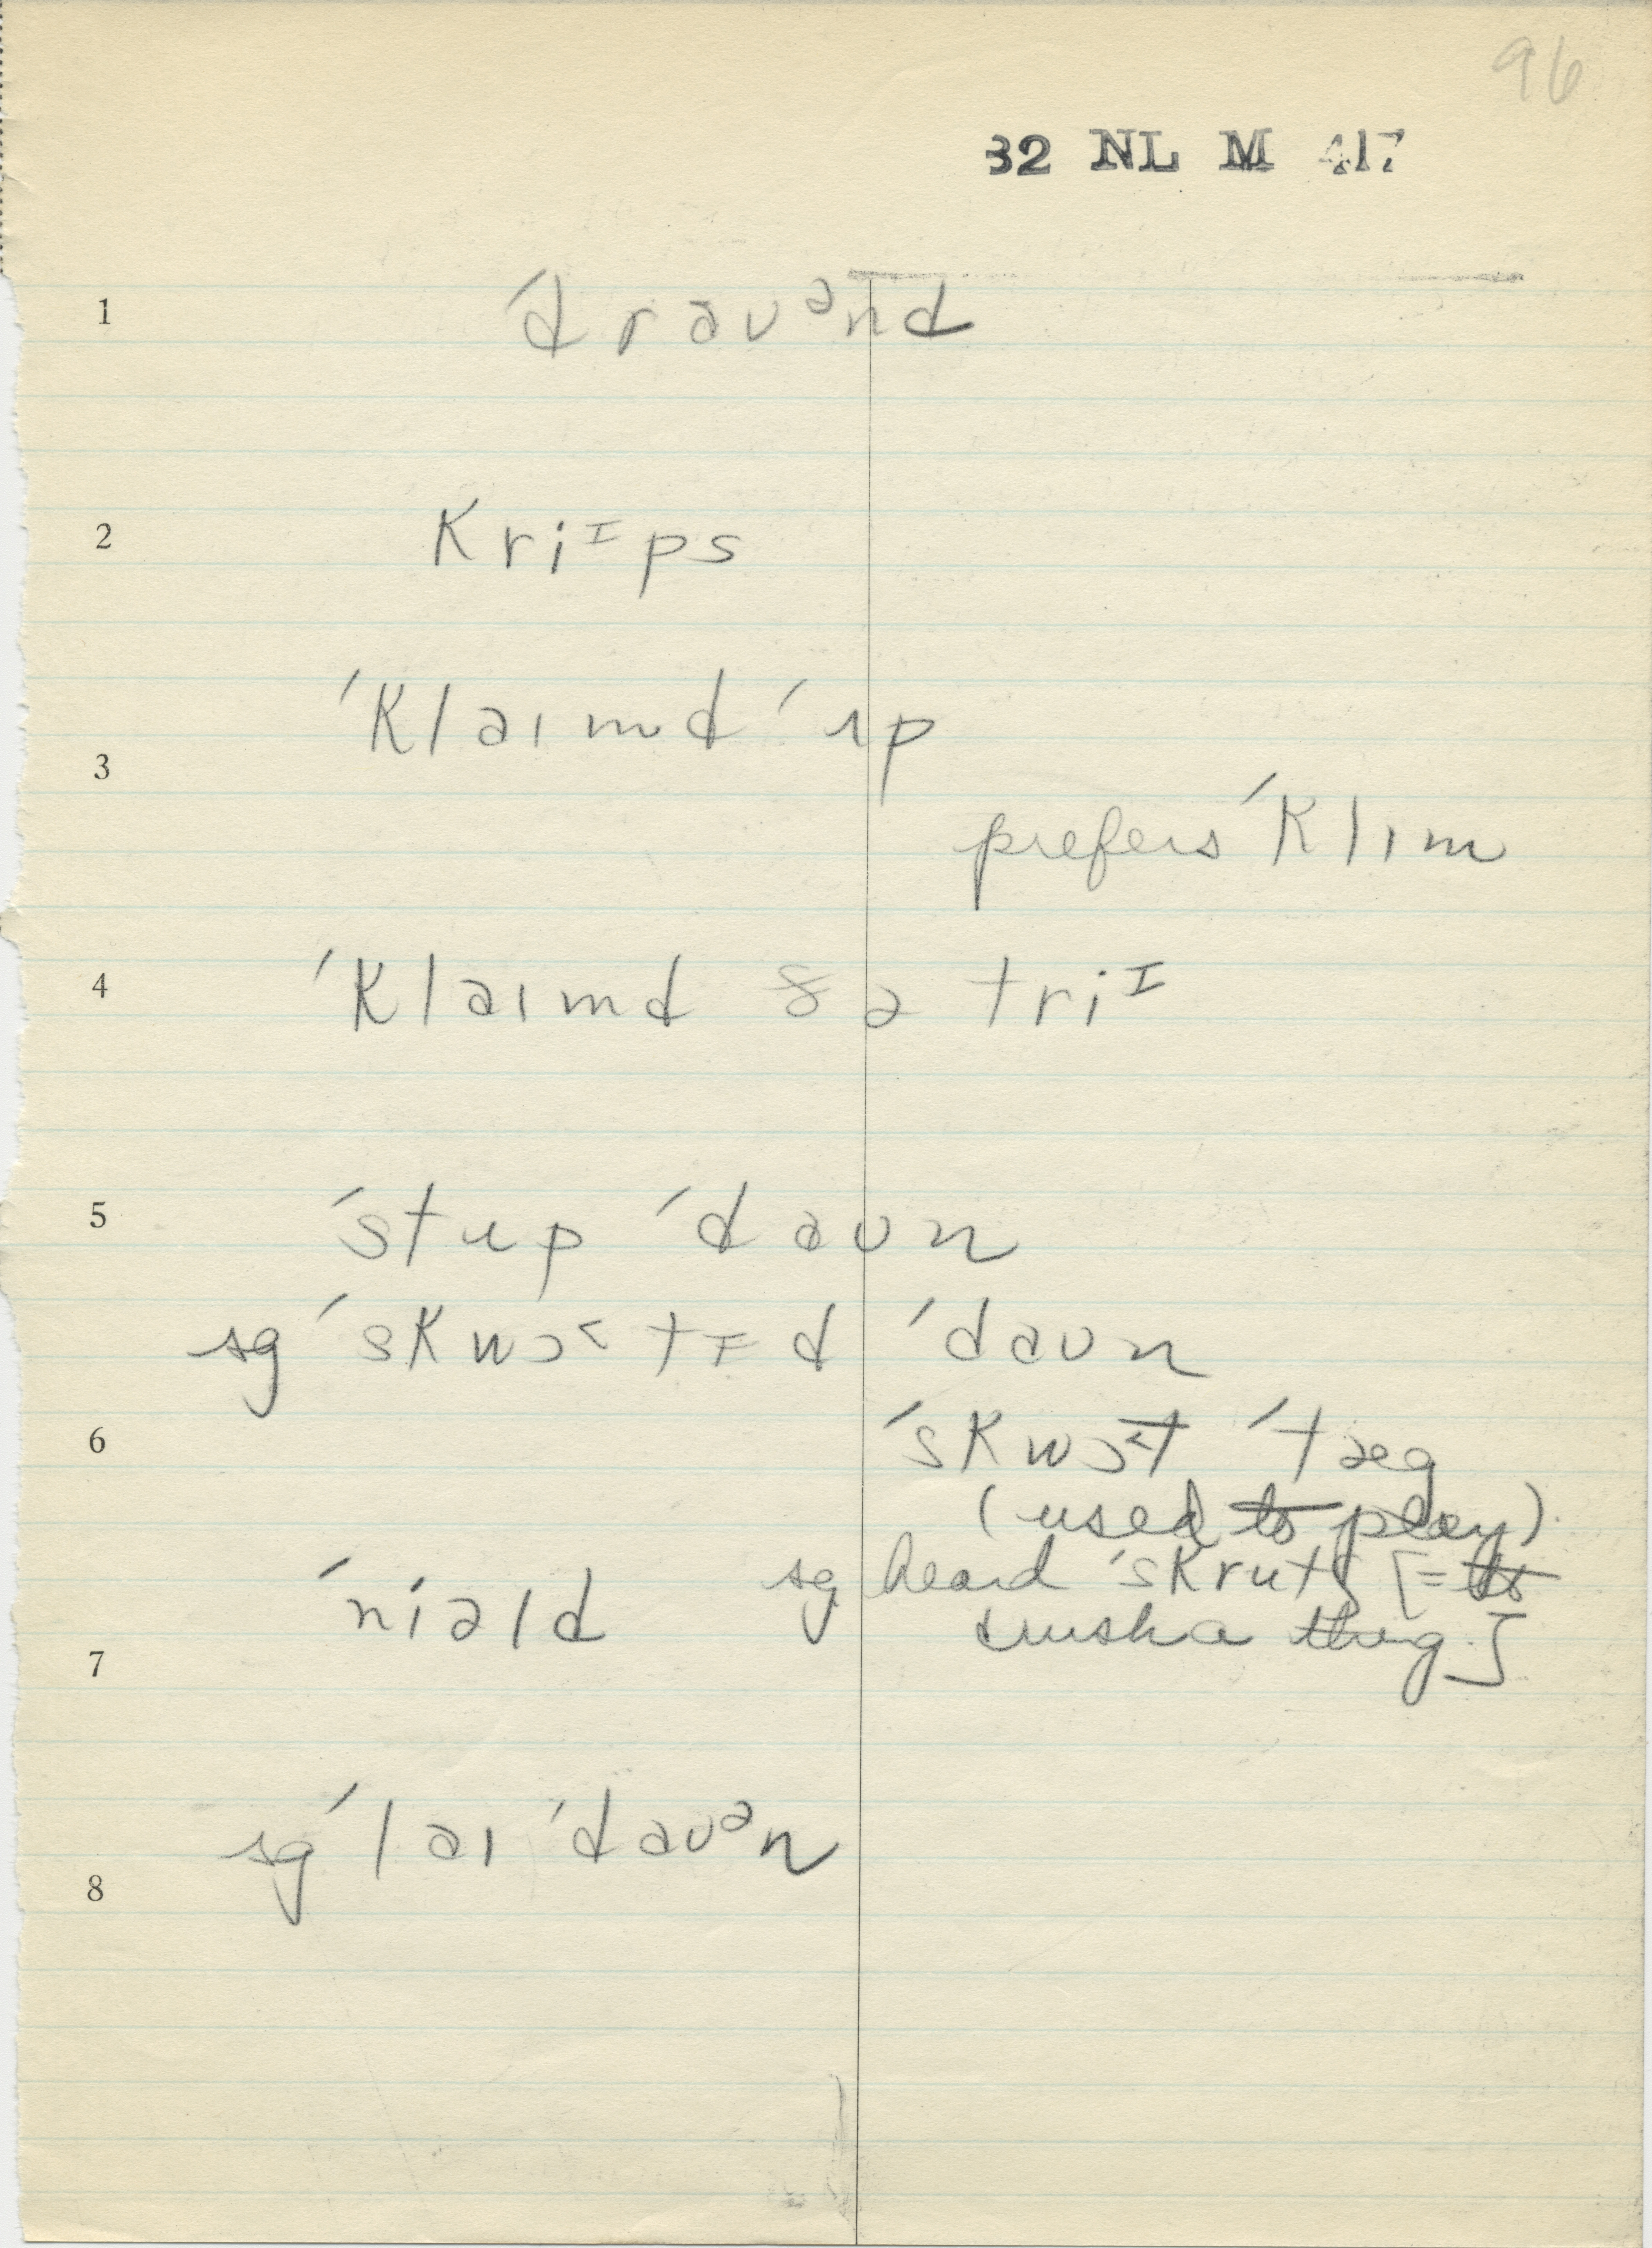 96
32 NL M 417
1 ˈdraʊᵊnd
2 kriᶦps
ˈklaɪmd ˈʌp
3
prefers ˈklɪm
4 ˈklaɪmd ðə triᶦ
5 ˈstup ˈdaʊn
sg ˈskwɔ˂tɪ̵d ˈdaʊn
6 ˈskwɔ˂t ˈtæg
(used to play)
sg heard ˈskrutʃ [= to
ˈniəld
crush a thing]
7
sg ˈlaɪ ˈdaʊᵊn
8